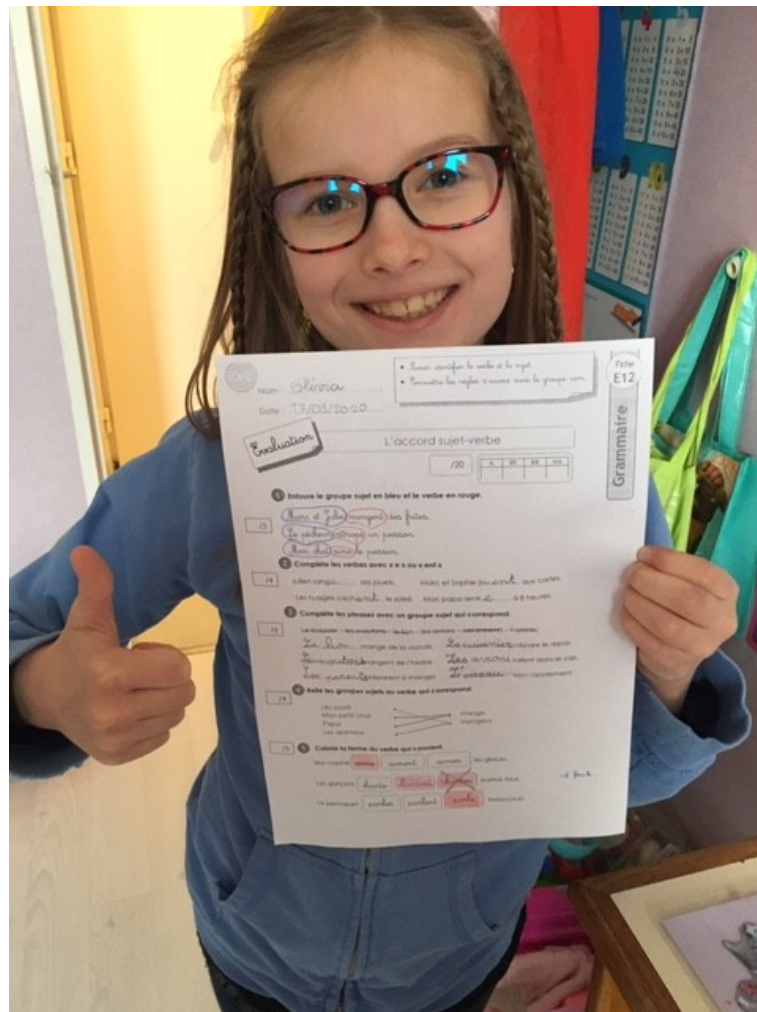 Nom : Olivia
Date : 17/03/2020
• Savoir identifier le verbe et le sujet.
• Connaître les règles d'accord dans le groupe
Fiche
E12
Grammaire
Evaluation
L'accord sujet-verbe
/20
A
NA
1 Entoure le groupe sujet en bleu et le verbe en rouge.
/3
Marc et Julie mangent des frites.
Le pêcheur attrape un poisson.
Mon chat aime le poisson.
2 Complète les verbes avec « e » ou « ent »
/4
Julien range ses jouets. Marc et Sophie jouent aux cartes.
Les nuages cachent le soleil. Mon papa rentre à 8 heures.
3 Complète les phrases avec un groupe sujet qui correspond.
Le lion mange de la viande. Le cuisinier prépare le repas.
mangent de l'herbe. Les avions volent dans le ciel.
Les parents préparent à manger. rapidement.
4 Relie les groupes sujets au verbe qui correspond.
/4
Les souris
Mon petit chat mange
Papa mangent
Les animaux
5 Colorie la forme du verbe qui convient.
Ma copine aime aiment aimes les glaces.
Les garçons
Le perroquet parles parlent parle beaucoup.